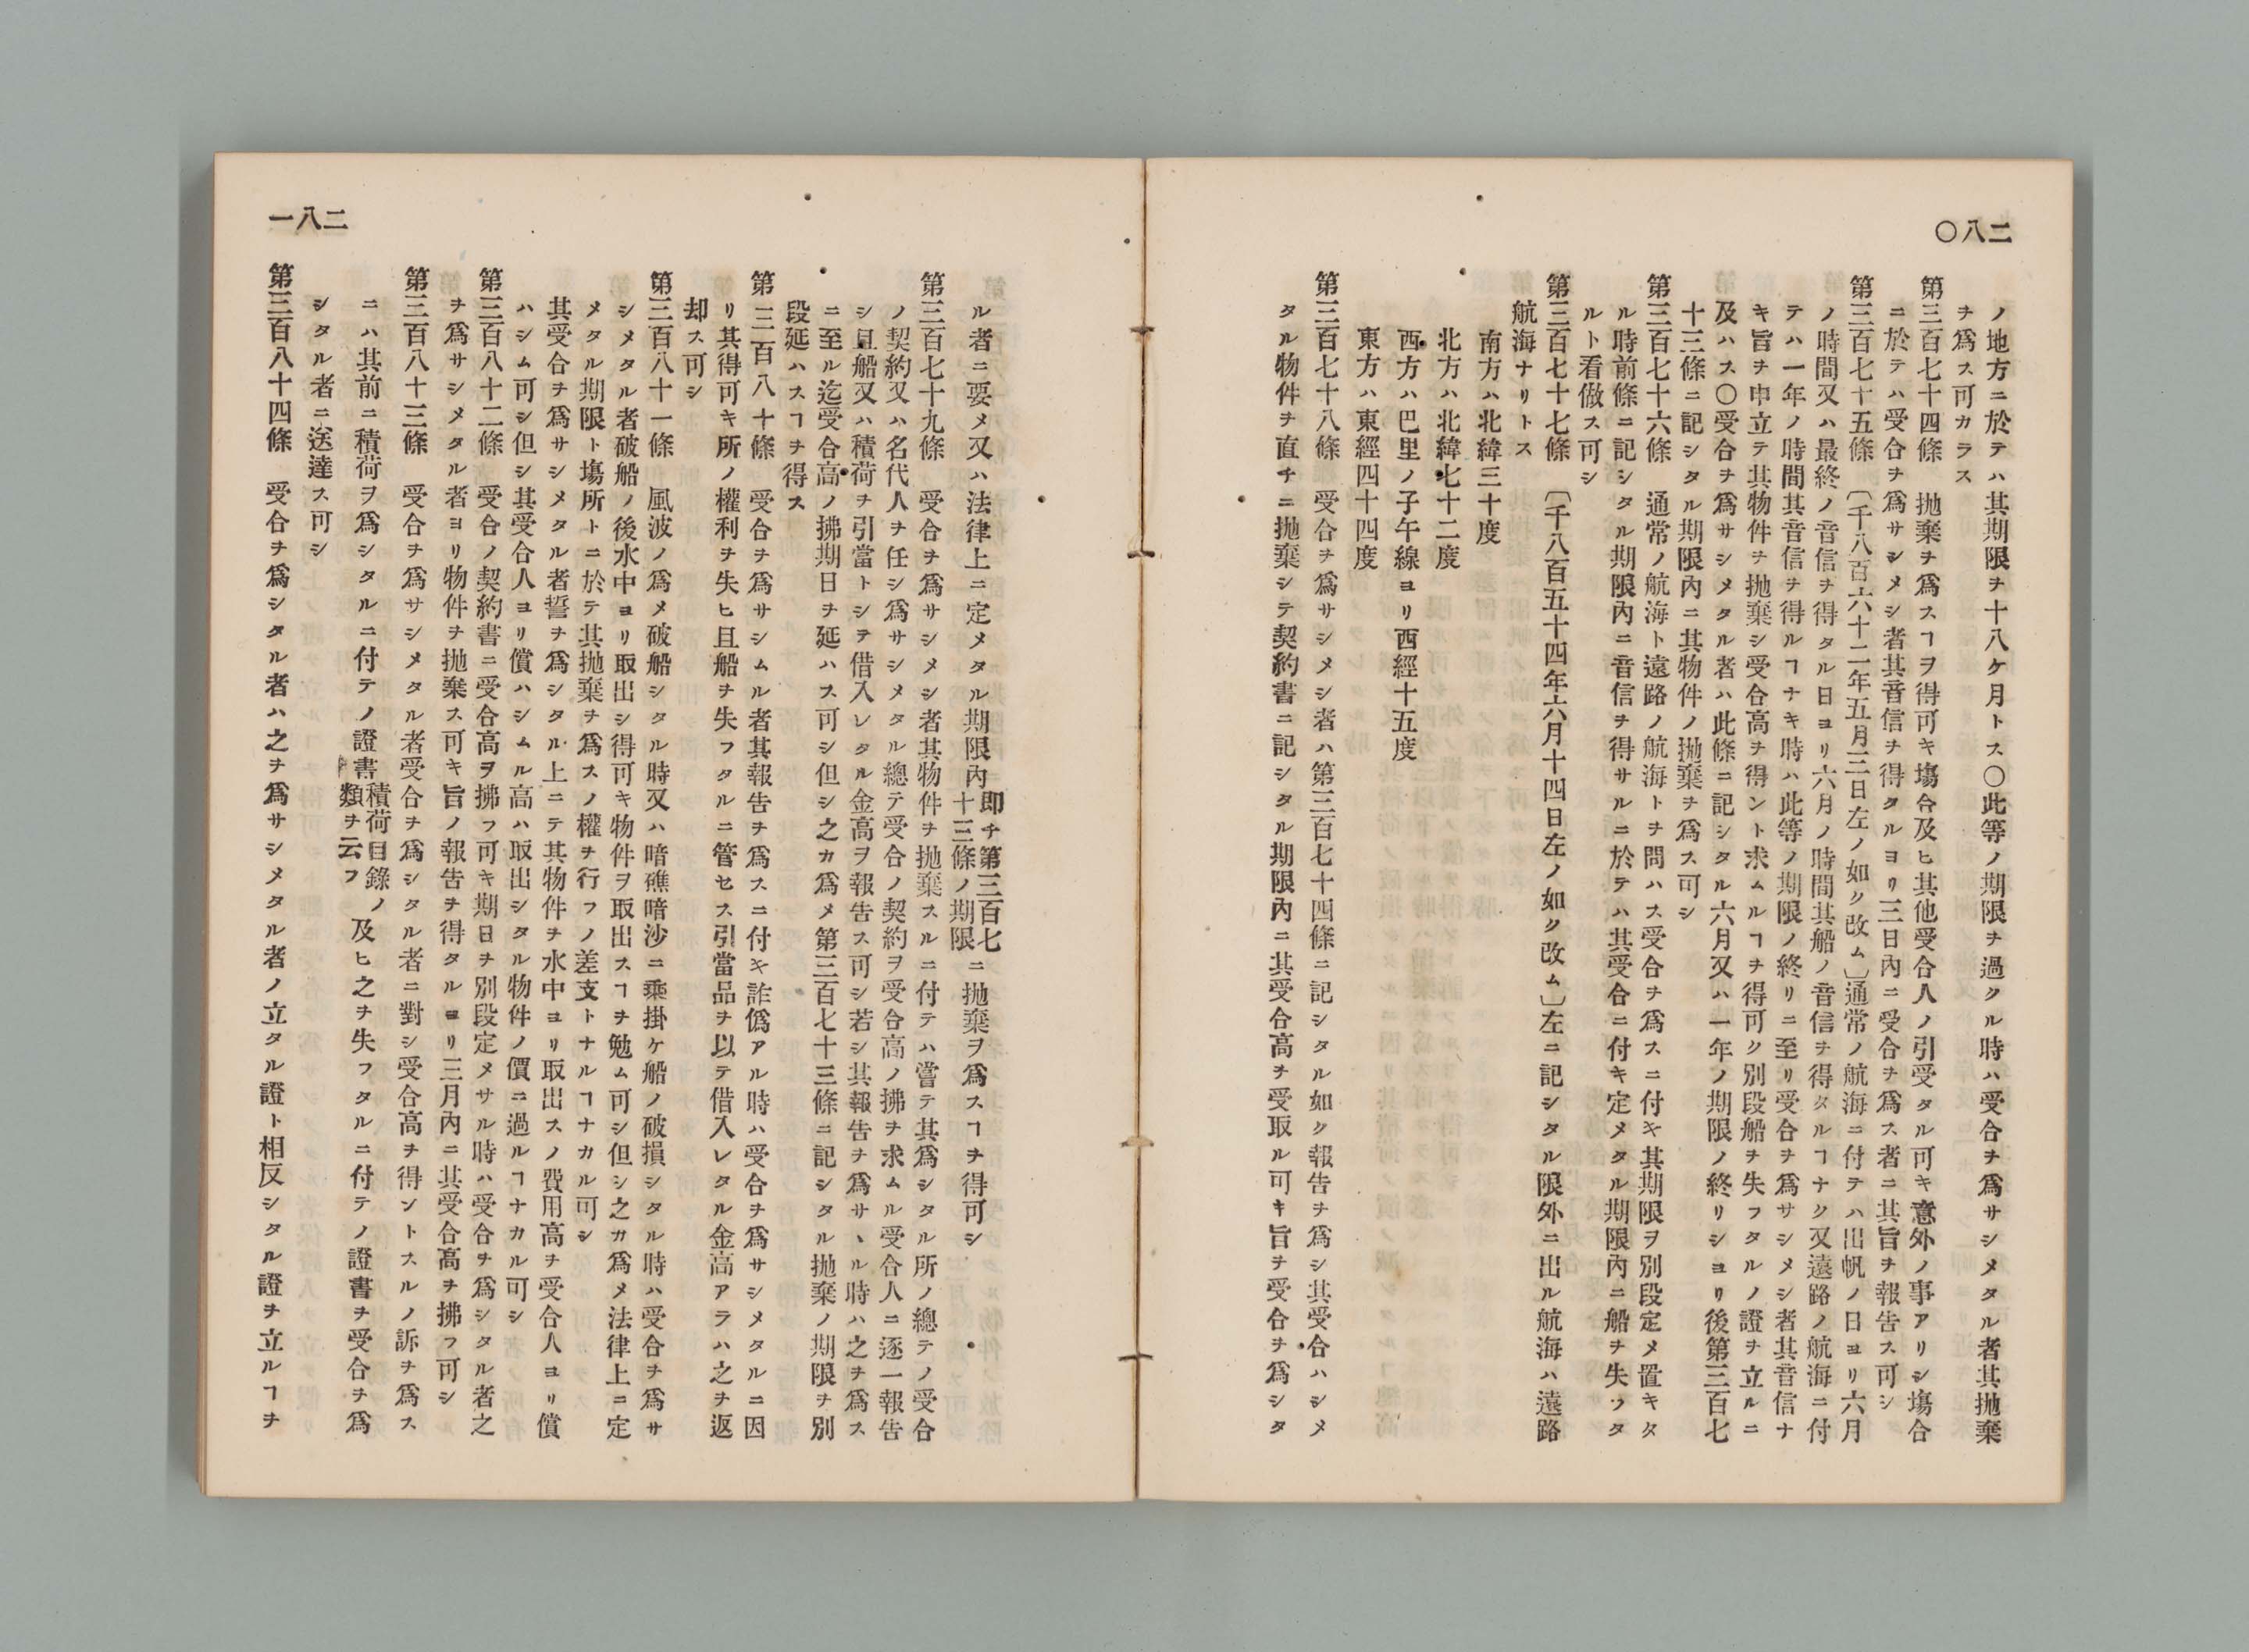 二八〇
ノ地方ニ於テハ其期限ヲ十八ケ月トス〇此等ノ期限ヲ過クル時ハ受合ヲ爲サシメタル者其抛棄
ヲ爲ス可カラス
第三百七十四條　抛棄ヲ爲スヿヲ得可キ塲合及ヒ其他受合人ノ引受タル可キ意外ノ事アリシ塲合
ニ於テハ受合ヲ爲サシメシ者其音信ヲ得タルヨリ三日內ニ受合ヲ爲ス者ニ其旨ヲ報告ス可シ
第三百七十五條　〔千八百六十二年五月三日左ノ如ク改ム〕通常ノ航海ニ付テハ出帆ノ日ヨリ六月
ノ時間又ハ最終ノ音信ヲ得タル日ヨリ六月ノ時間其船ノ音信ヲ得タルヿナク又遠路ノ航海ニ付
テハ一年ノ時間其音信ヲ得ルヿナキ時ハ此等ノ期限ノ終リニ至リ受合ヲ爲サシメシ者其音信ナ
キ旨ヲ申立テ其物件ヲ抛棄シ受合高ヲ得ント求ムルヿヲ得可ク別段船ヲ失フタルノ證ヲ立ルニ
及ハス〇受合ヲ爲サシメタル者ハ此條ニ記シタル六月又ハ一年ノ期限ノ終リシヨリ後第三百七
十三條ニ記シタル期限內ニ其物件ノ抛棄ヲ爲ス可シ
第三百七十六條　通常ノ航海ト遠路ノ航海トヲ問ハス受合ヲ爲スニ付キ其期限ヲ別段定メ置キタ
ル時前條ニ記シタル期限內ニ音信ヲ得サルニ於テハ其受合ニ付キ定メタル期限內ニ船ヲ失フタ
ルト看做ス可シ
第三百七十七條　〔千八百五十四年六月十四日左ノ如ク改ム〕左ニ記シタル限外ニ出ル航海ハ遠路
航海ナリトス
南方ハ北緯三十度
北方ハ北緯七十二度
西方ハ巴里ノ子午線ヨリ西經十五度
東方ハ東經四十四度
第三百七十八條　受合ヲ爲サシメシ者ハ第三百七十四條ニ記シタル如ク報告ヲ爲シ其受合ハシメ
タル物件ヲ直チニ抛棄シテ契約書ニ記シタル期限內ニ其受合高ヲ受取ル可キ旨ヲ受合ヲ爲シタ
二八一
ル者ニ要メ又ハ法律上ニ定メタル期限內即チ第三百七十三條ノ期限ニ抛棄ヲ爲スヿヲ得可シ
第三百七十九條　受合ヲ爲サシメシ者其物件ヲ抛棄スルニ付テハ嘗テ其爲シタル所ノ總テノ受合
ノ契約又ハ名代人ヲ任シ爲サシメタル總テ受合ノ契約ヲ受合高ノ拂ヲ求ムル受合人ニ逐一報告
シ且船又ハ積荷ヲ引當トシテ借入レタル金高ヲ報告ス可シ若シ其報告ヲ爲サヽル時ハ之ヲ爲ス
ニ至ル迄受合高ノ拂期日ヲ延ハス可シ但シ之カ爲メ第三百七十三條ニ記シタル抛棄ノ期限ヲ別
段延ハスヿヲ得ス
第三百八十條　受合ヲ爲サシムル者其報告ヲ爲スニ付キ詐僞アル時ハ受合ヲ爲サシメタルニ因
リ其得可キ所ノ權利ヲ失ヒ且船ヲ失フタルニ管セス引當品ヲ以テ借入レタル金高アラハ之ヲ返
却ス可シ
第三百八十一條　風波ノ爲メ破船シタル時又ハ暗礁暗沙ニ乘掛ケ船ノ破損シタル時ハ受合ヲ爲サ
シメタル者破船ノ後水中ヨリ取出シ得可キ物件ヲ取出スヿヲ勉ム可シ但シ之カ爲メ法律上ニ定
メタル期限ト塲所トニ於テ其抛棄ヲ爲スノ權ヲ行フノ差支トナルヿナカル可シ
其受合ヲ爲サシメタル者誓ヲ爲シタル上ニテ其物件ヲ水中ヨリ取出スノ費用高ヲ受合人ヨリ償
ハシム可シ但シ其受合人ヨリ償ハシムル高ハ取出シタル物件ノ價ニ過ルヿナカル可シ
第三百八十二條　受合ノ契約書ニ受合高ヲ拂フ可キ期日ヲ別段定メサル時ハ受合ヲ爲シタル者之
ヲ爲サシメタル者ヨリ物件ヲ抛棄ス可キ旨ノ報告ヲ得タルヨリ三月內ニ其受合高ヲ拂フ可シ
第三百八十三條　受合ヲ爲サシメタル者受合ヲ爲シタル者ニ對シ受合高ヲ得ントスルノ訴ヲ爲ス
ニハ其前ニ積荷ヲ爲シタルニ付テノ證書積荷目錄ノ類ヲ云フ及ヒ之ヲ失フタルニ付テノ證書ヲ受合ヲ爲
シタル者ニ送達ス可シ
第三百八十四條　受合ヲ爲シタル者ハ之ヲ爲サシメタル者ノ立タル證ト相反シタル證ヲ立ルヿヲ